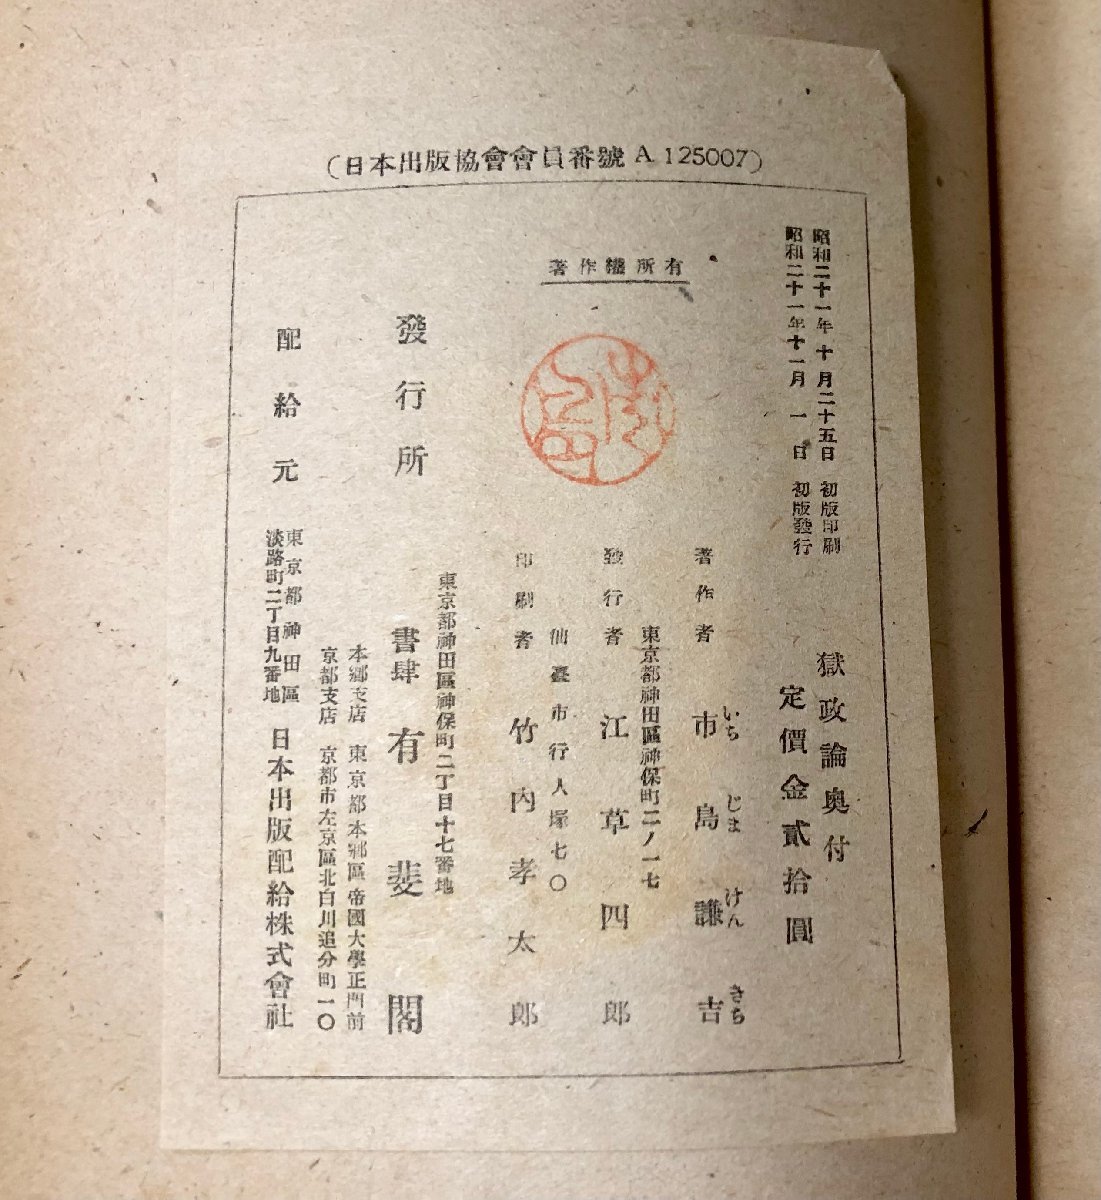 (日本出版協會會員番號 A 125007)
昭和二十一年十月二十五日 初版印刷
昭和二十一年十一月一日 初版發行
獄政論奧付
定價金貳拾圓
有所權作著
著作者 市島謙吉
いち じま けん きち
發行者 江草四郎
東京都神田區神保町二ノ一七
印刷者 竹内孝太郎
仙臺市行人塚七〇
發行所
東京都神田區神保町二丁目十七番地
書肆 有斐閣
本鄕支店 東京都本鄕區帝國大學正門前
京都支店 京都市左京區北白川追分町一〇
配給元
東京都神田區
淡路町二丁目九番地
日本出版配給株式會社